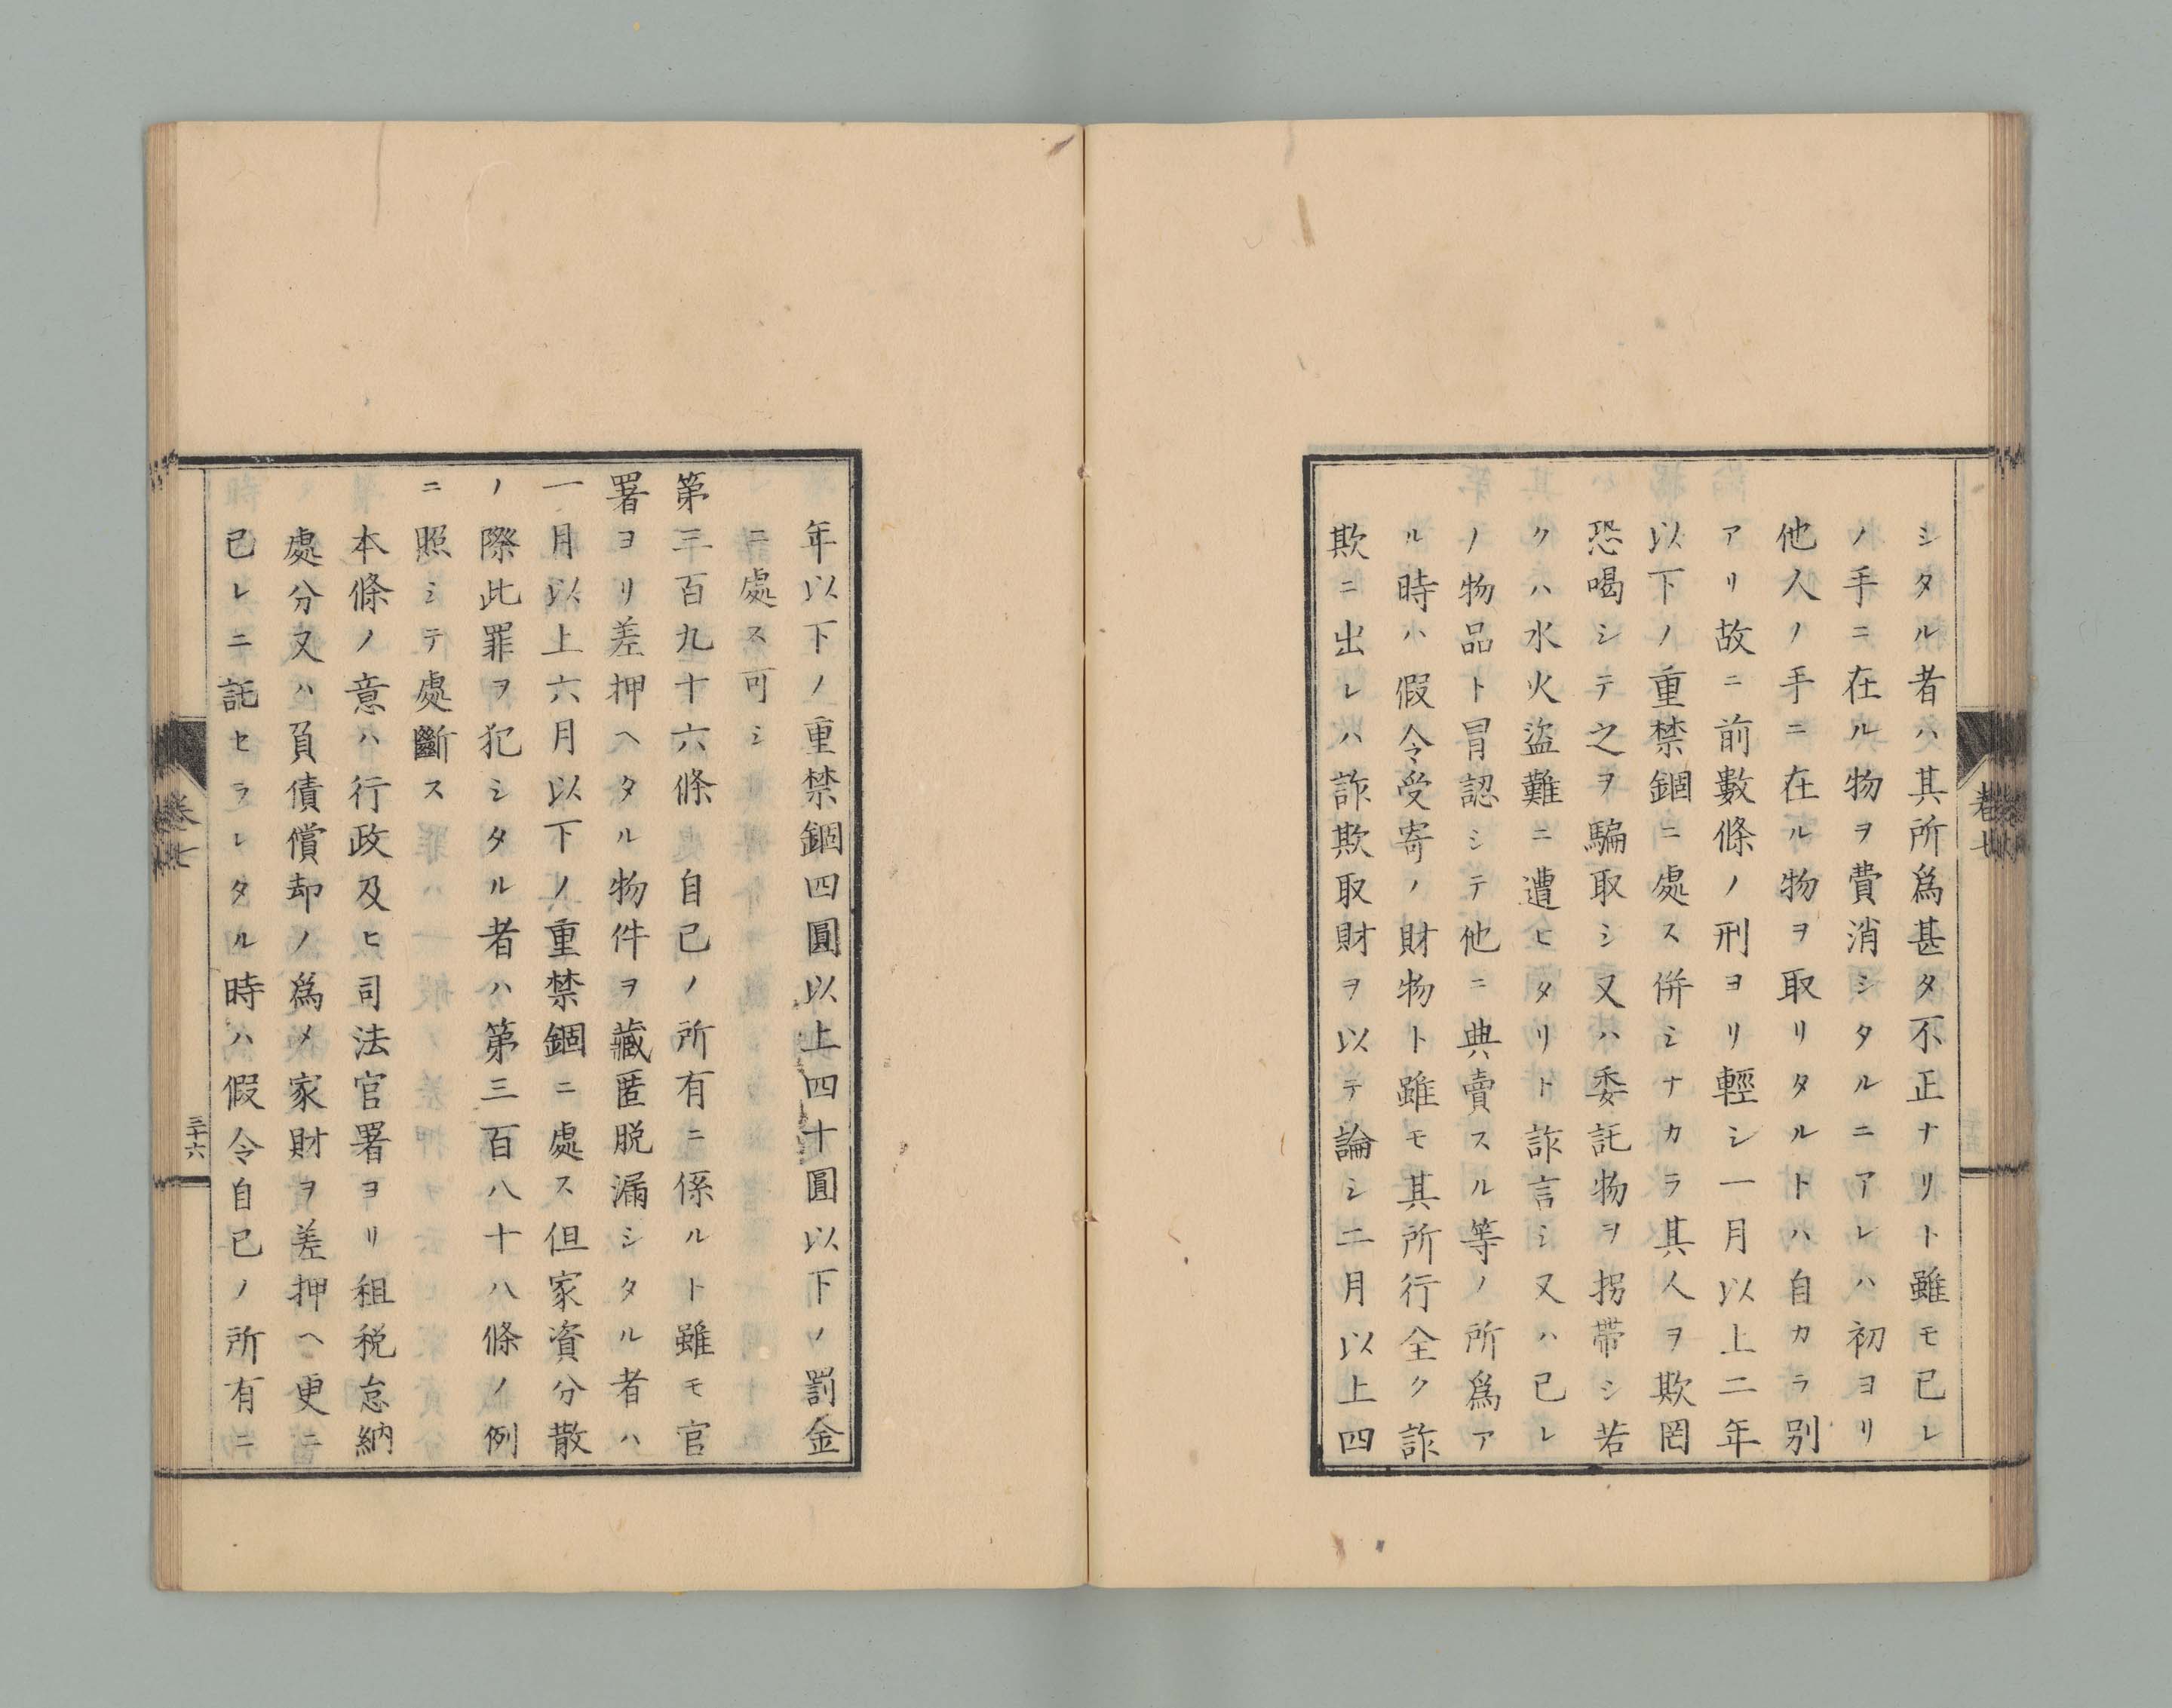 シタル者ハ其所爲甚タ不正ナリト雖モ已レ
ノ手ニ在ル物ヲ費消シタルニアレハ初ヨリ
他人ノ手ニ在ル物ヲ取リタルトハ自カラ別
アリ故ニ前數條ノ刑ヨリ輕シ一月以上二年
以下ノ重禁錮ニ處ス併シナカラ其人ヲ欺罔
恐喝シテ之ヲ騙取シ又ハ委託物ヲ拐帶シ若
クハ水火盜難ニ遭ヒタリト詐言シ又ハ已レ
ノ物品ト冒認シテ他ニ典賣スル等ノ所爲ア
ル時ハ假令受寄ノ財物ト雖モ其所行全ク詐
欺ニ出レハ詐欺取財ヲ以テ論シ二月以上四
年以下ノ重禁錮四圓以上四十圓以下ノ罰金
ニ處ス可シ
第三百九十六條 自已ノ所有ニ係ルト雖モ官
署ヨリ差押ヘタル物件ヲ藏匿脱漏シタル者ハ
一月以上六月以下ノ重禁錮ニ處ス但家資分散
ノ際此罪ヲ犯シタル者ハ第三百八十八條ノ例
ニ照シテ處斷ス
本條ノ意ハ行政及ヒ司法官署ヨリ租税怠納
處分又ハ負債償却ノ爲メ家財ヲ差押ヘ更ニ
已レニ託セラレタル時ハ假令自已ノ所有ニ
卷七
三十六